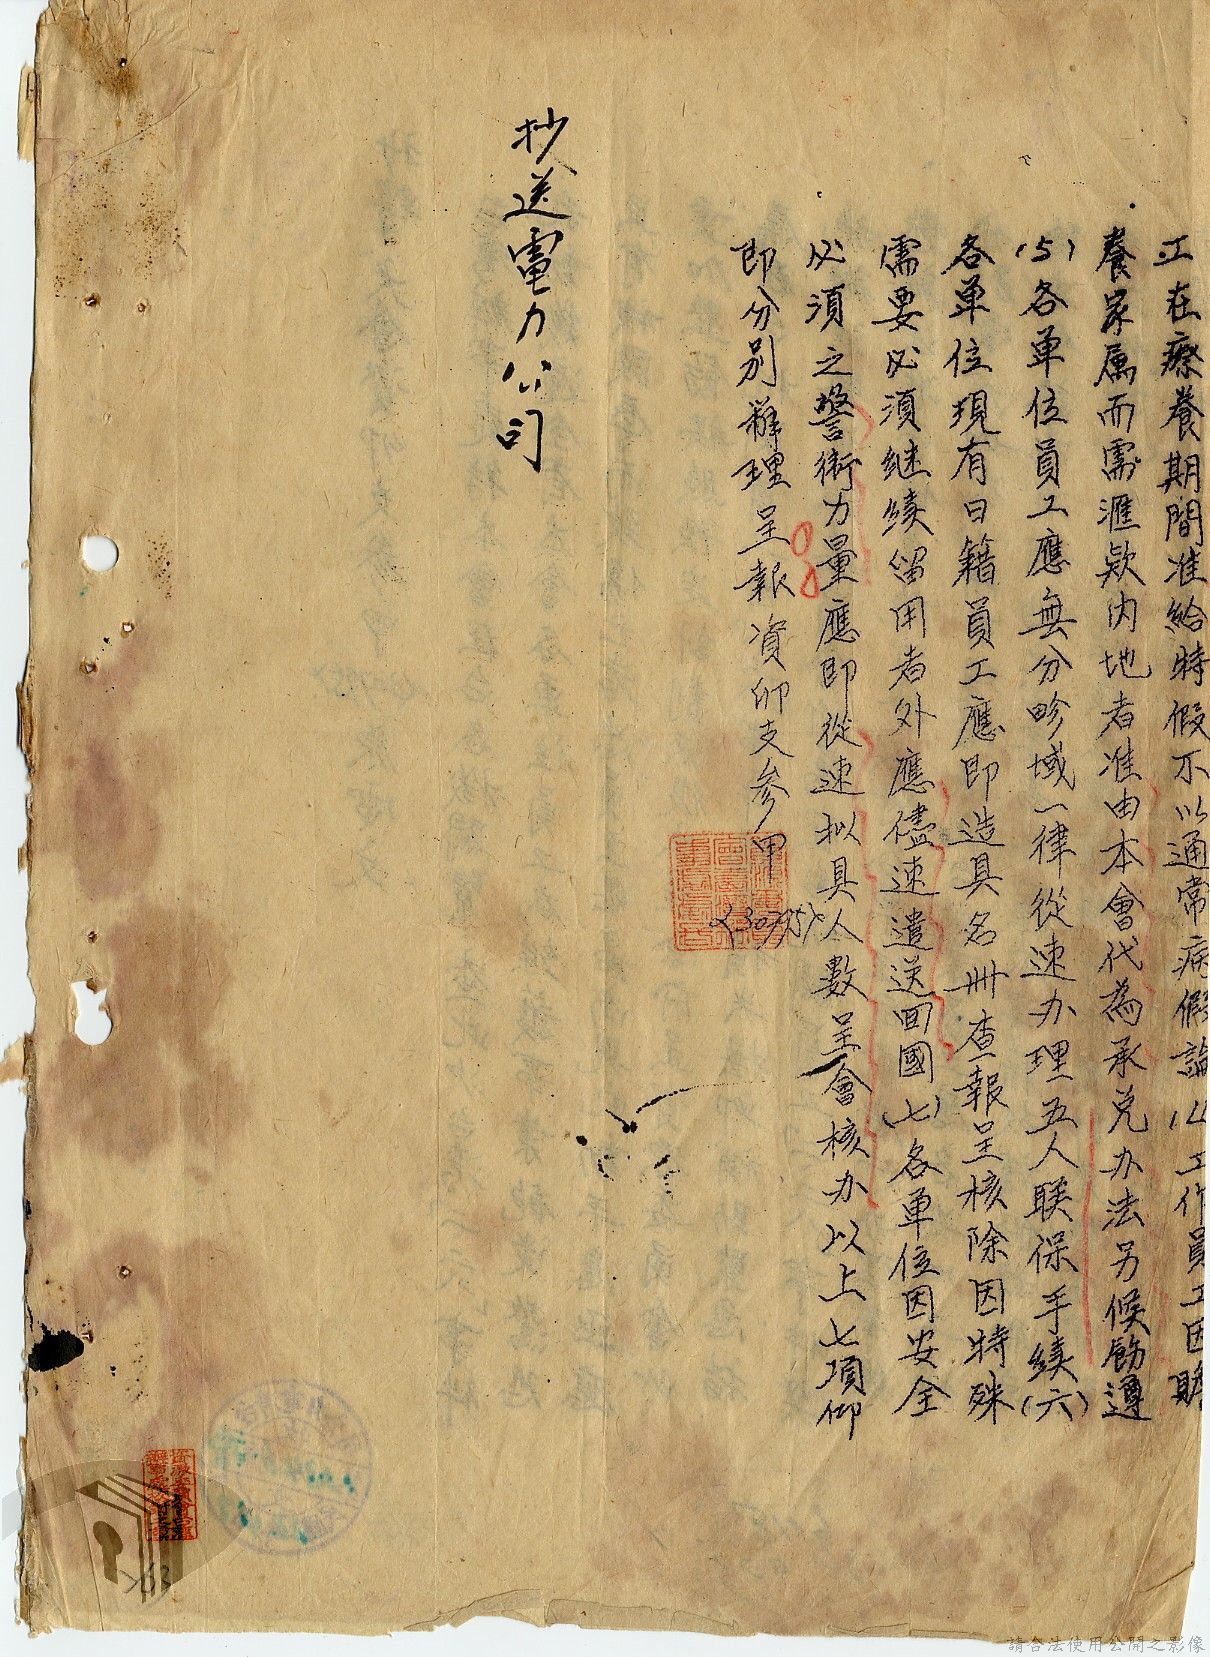 工在療養期間准給特假不以通常病假論(4)工作員工因贍
養家属而需滙欵内地者准由本會代為承兑办法另候飭遵
(5)各單位員工應無分畛域一律從速办理五人联保手續(六)
各單位現有日籍員工應即造具名册查報呈核除因特殊
需要必須继续留用者外應儘速遣送回國(七)各單位因安全
必須之警衛力量應即從速拟具人數呈會核办以上七項仰
即分别辦理呈報資卯支参甲
(30795)
抄送電力公司
請合法使用公開之影像